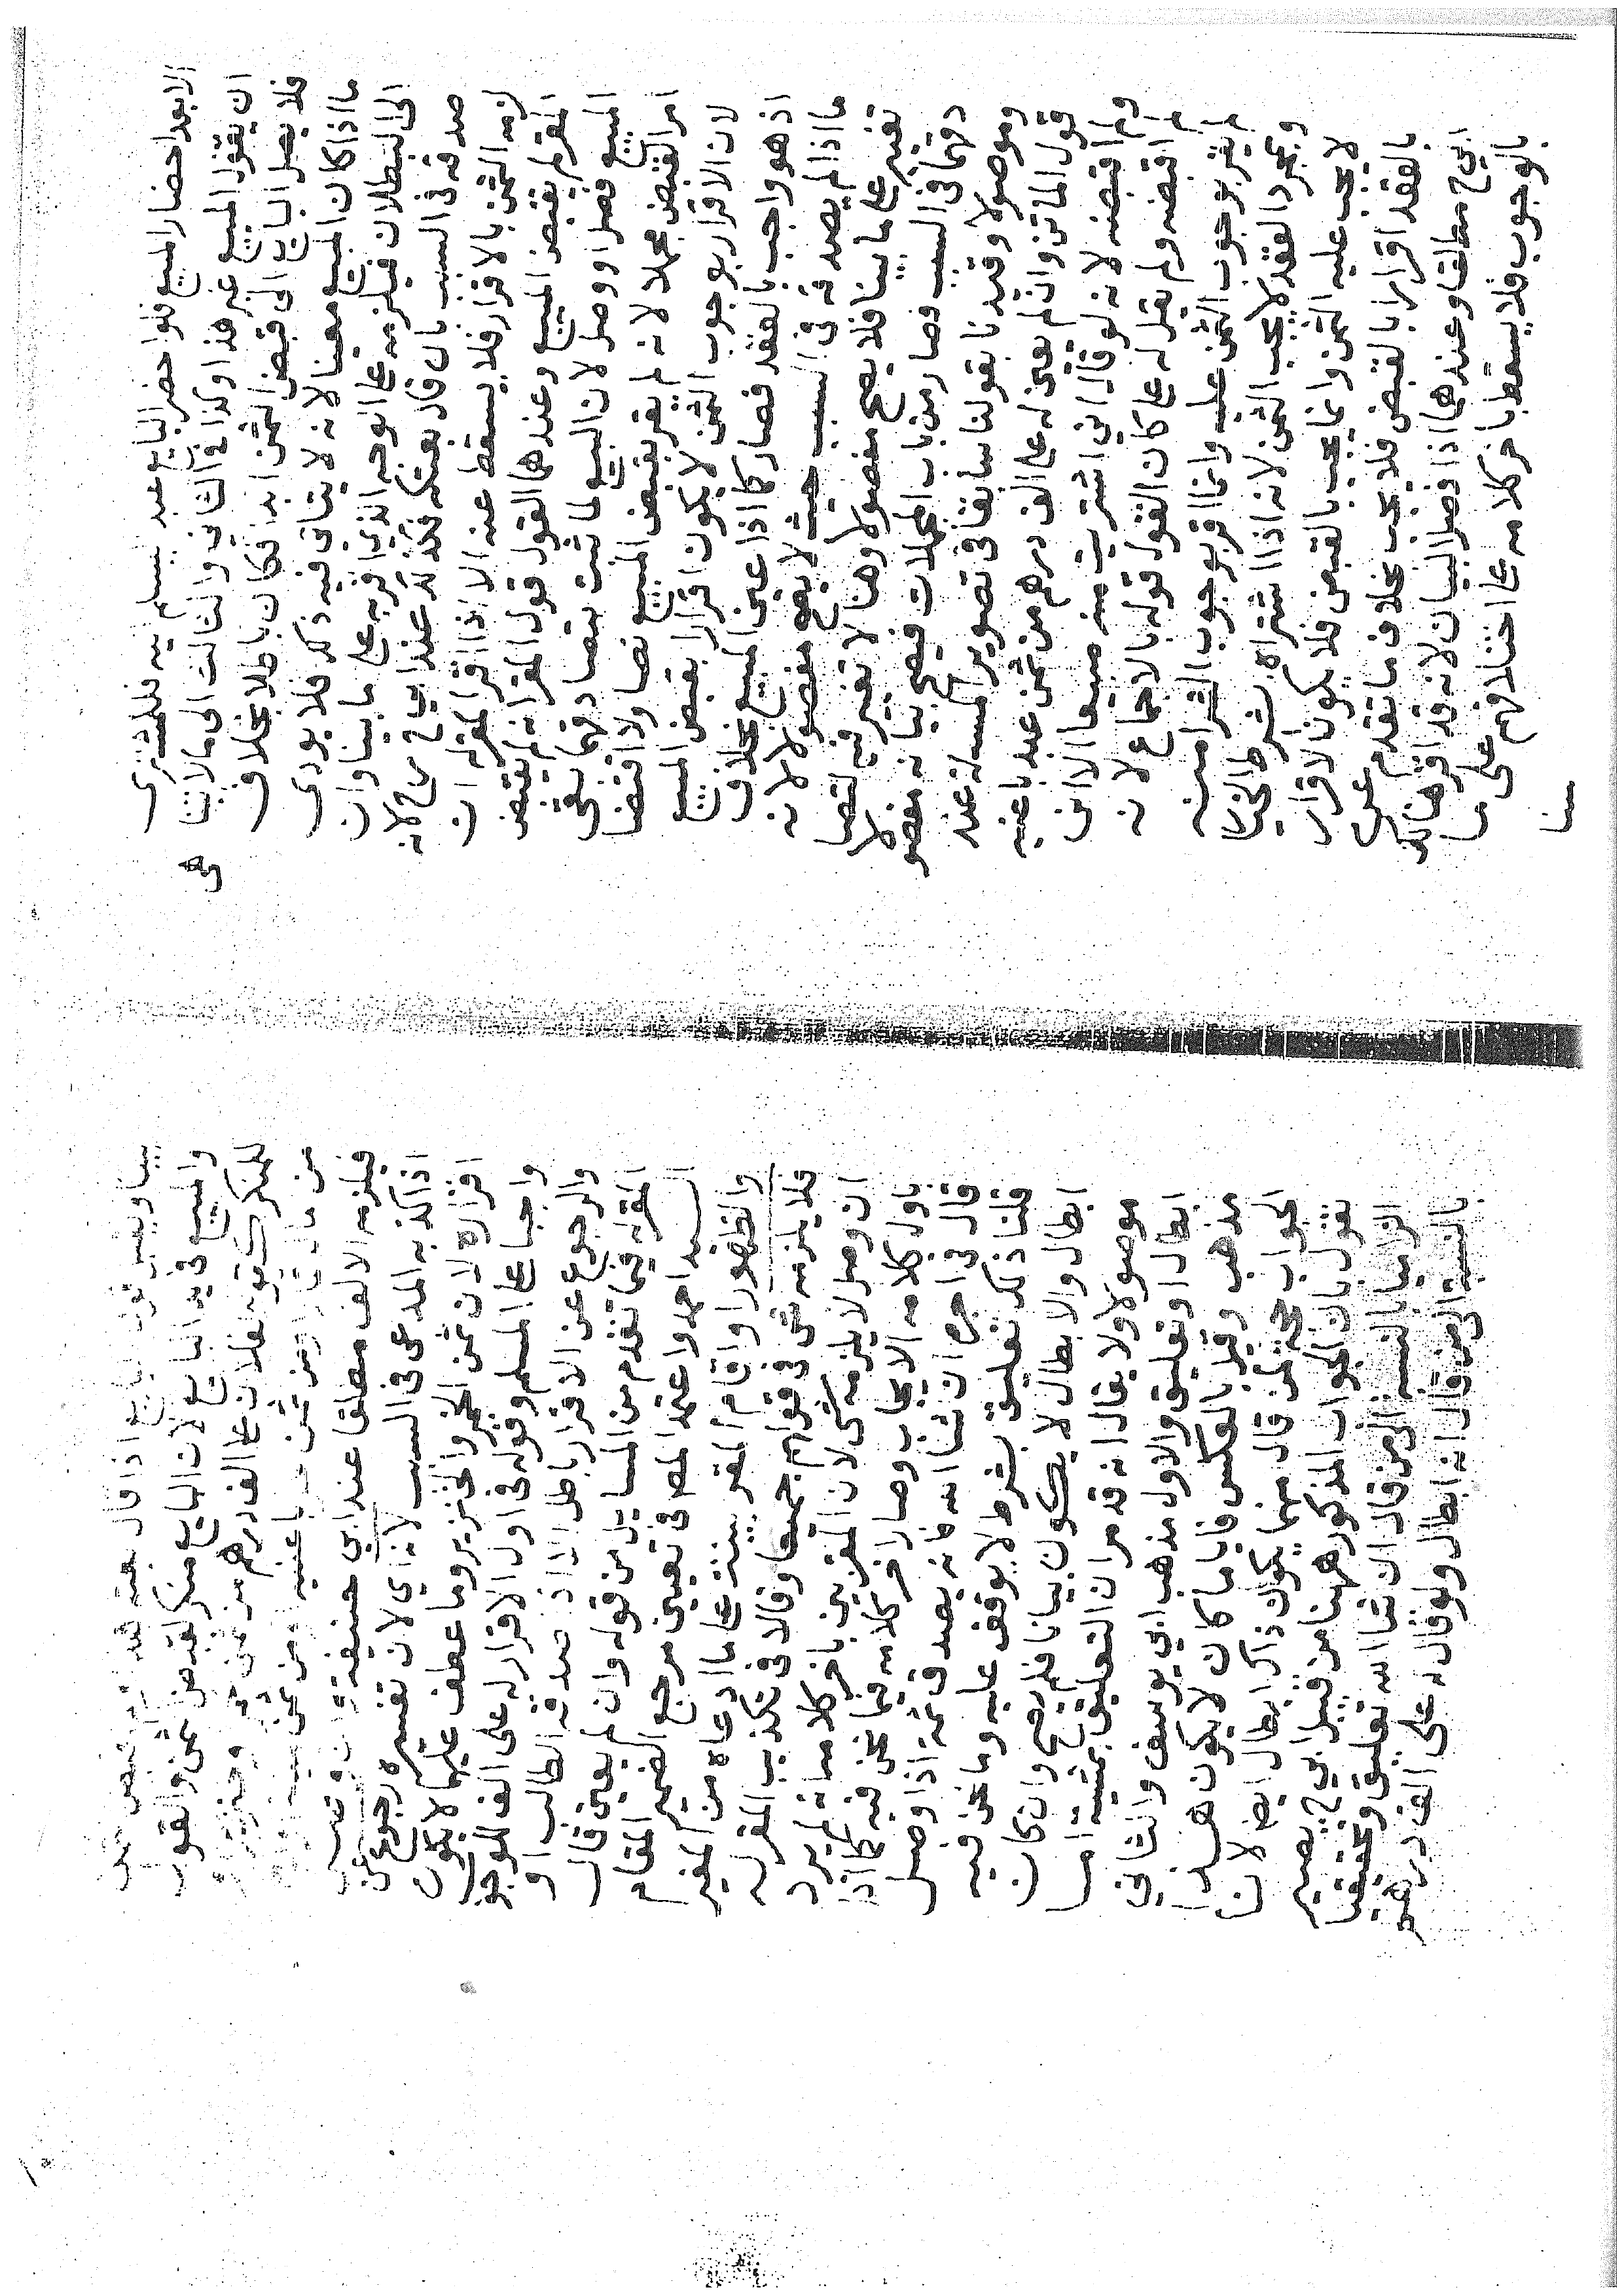 الا بعد احضار المبيع فلو احضر البايع عبد يسلم به فللمشترى
ان يقول المبيع غير هذا وكذا في الثاني والثالث الى ما لا يتنا
هى
فلا يصل البايع الى قبض الثمن ابدا فكان باطلا بخلاف
ما اذا كان المبيع معينا لانه لا يتاتى فيه ذكر فلا يودى
الى البطلان فيلزمه على الوجه الذي اقر به على ما بينا وان
صدقه فى السبب بان قال بعتكه فكذلك عند ابي ح رح لانه
لزمه الثمن بالاقرار فلا يسقط عنه الا اذا اقر المقر له ان
المقر لم يقبض المبيع وعندهما القول قول المقر انه لم يقبض
المبيع فصل او وصل لان البيع لما ثبت بتصادقهما بقى
امر القبض مجملا لانه لم يقر بقبض المبيع نصا ولا اقتضا
لان الاقرار بوجوب الثمن لا يكون اقرارا بقبض المبيع
اذ هو واجب بالعقد فصار كما اذا عين المبيع بخلاف
ما اذا لم يصدقه فى السبب حيث لا يصح مفصولا لانه
تغيير على ما بينا فلا يصح مفصولا وهنا لا تغيير فيه لتصا
دقهما فى السبب فصار من باب المجملات فيصح بيانه مفصولا
وموصولا وقيدنا بقولنا سابقا فى تصوير المسئلة عند
قول الماتن وان لم يعين له على الف درهم من ثمن عبد باعنيه
ولم اقبضه لانه لو قال اني اشتريت منه مبيعا الا انى
لم اقبضه ولم يقل له على كان القول قوله بالاجماع لانه
لم يقر بوجوب الثمن عليه وانما اقر بوجوب الشرا منه
وبمجرد العقد لا يجب الثمن لانه اذا اشتراه بشرط الخيار
لا يجب عليه الثمن وانما يجب بالقبض فلا يكون الاقرار
بالعقد اقرارا بالقبض فلا يجب بخلاف ما تقدم عن
ابي ح مطلقا وعندهما اذا فصل البيان لانه قد اقر هناك
بالوجوب فلا يسقط باخر كلامه على اختلافهم على ما
بينا
اذا قال بعته
والمبيع فى يد البايع لان البايع منكر لقبض الثمن والقول
للمنكر كقوله لفلان على الف درهم من ثمن خمر وخنزير او
من مال القمار او من ثمن حر باعنيه او من ثمن ميتة
فيلزمه الالف مطلقا عند ابي حنيفة
اذا كذبه المدعى فى السبب لانه اي لان تفسيره رجوع عن
اقراره لان ثمن الخمر والخنزير وما عطف عليهما لا يكون
واجبا على المسلم وقوله فى اول الاقرار له على الف للوجوب
والرجوع عن الاقرار باطل الا اذا صدقه الطالب او
المقر له فيما تقدم من المسايل من قوله وان لم يعين قال
السيد احمد واعتمد المص فى تعيين مرجع الضمير المقام
والظهور او اقام المقر بينة على ما ادعاه من المغير
فلا يلزمه شى فى قولهم جميعا وقالا فى تكذيب المقر له
ان وصل لا يلزمه شى لان المقر بين باخر كلامه انه لم يرد
باول كلامه الايجاب وصار اخر كلامه فيما نحن فيه كما اذا
قال فى اخره ان شا الله فانه يصدق ثمة اذا وصل
قلنا ذكر تعليق بشرط لا يوقف عليه وما نحن فيه
ابطال والابطال لا يكون بيانا فلم يصح وان كان
موصولا ولا يقال انه قد مر ان التعليق بمشيئة الله
ابطال او تعليق والاول مذهب ابي يوسف والثاني
مذهب وقيل بالعكس فايا ما كان لا يكون هذا
الجواب حجة لمن قال منهما يكون ذكرا ابطال ايضا لان
نقول بان الجواب المذكور ههنا من قبيل ابي ح يصير
الزاميا بالنسبة الى من قال ان شا الله تعليق وتحقيقا
بالنسبة الى من قال انه ابطال ولو قال له على الف درهم